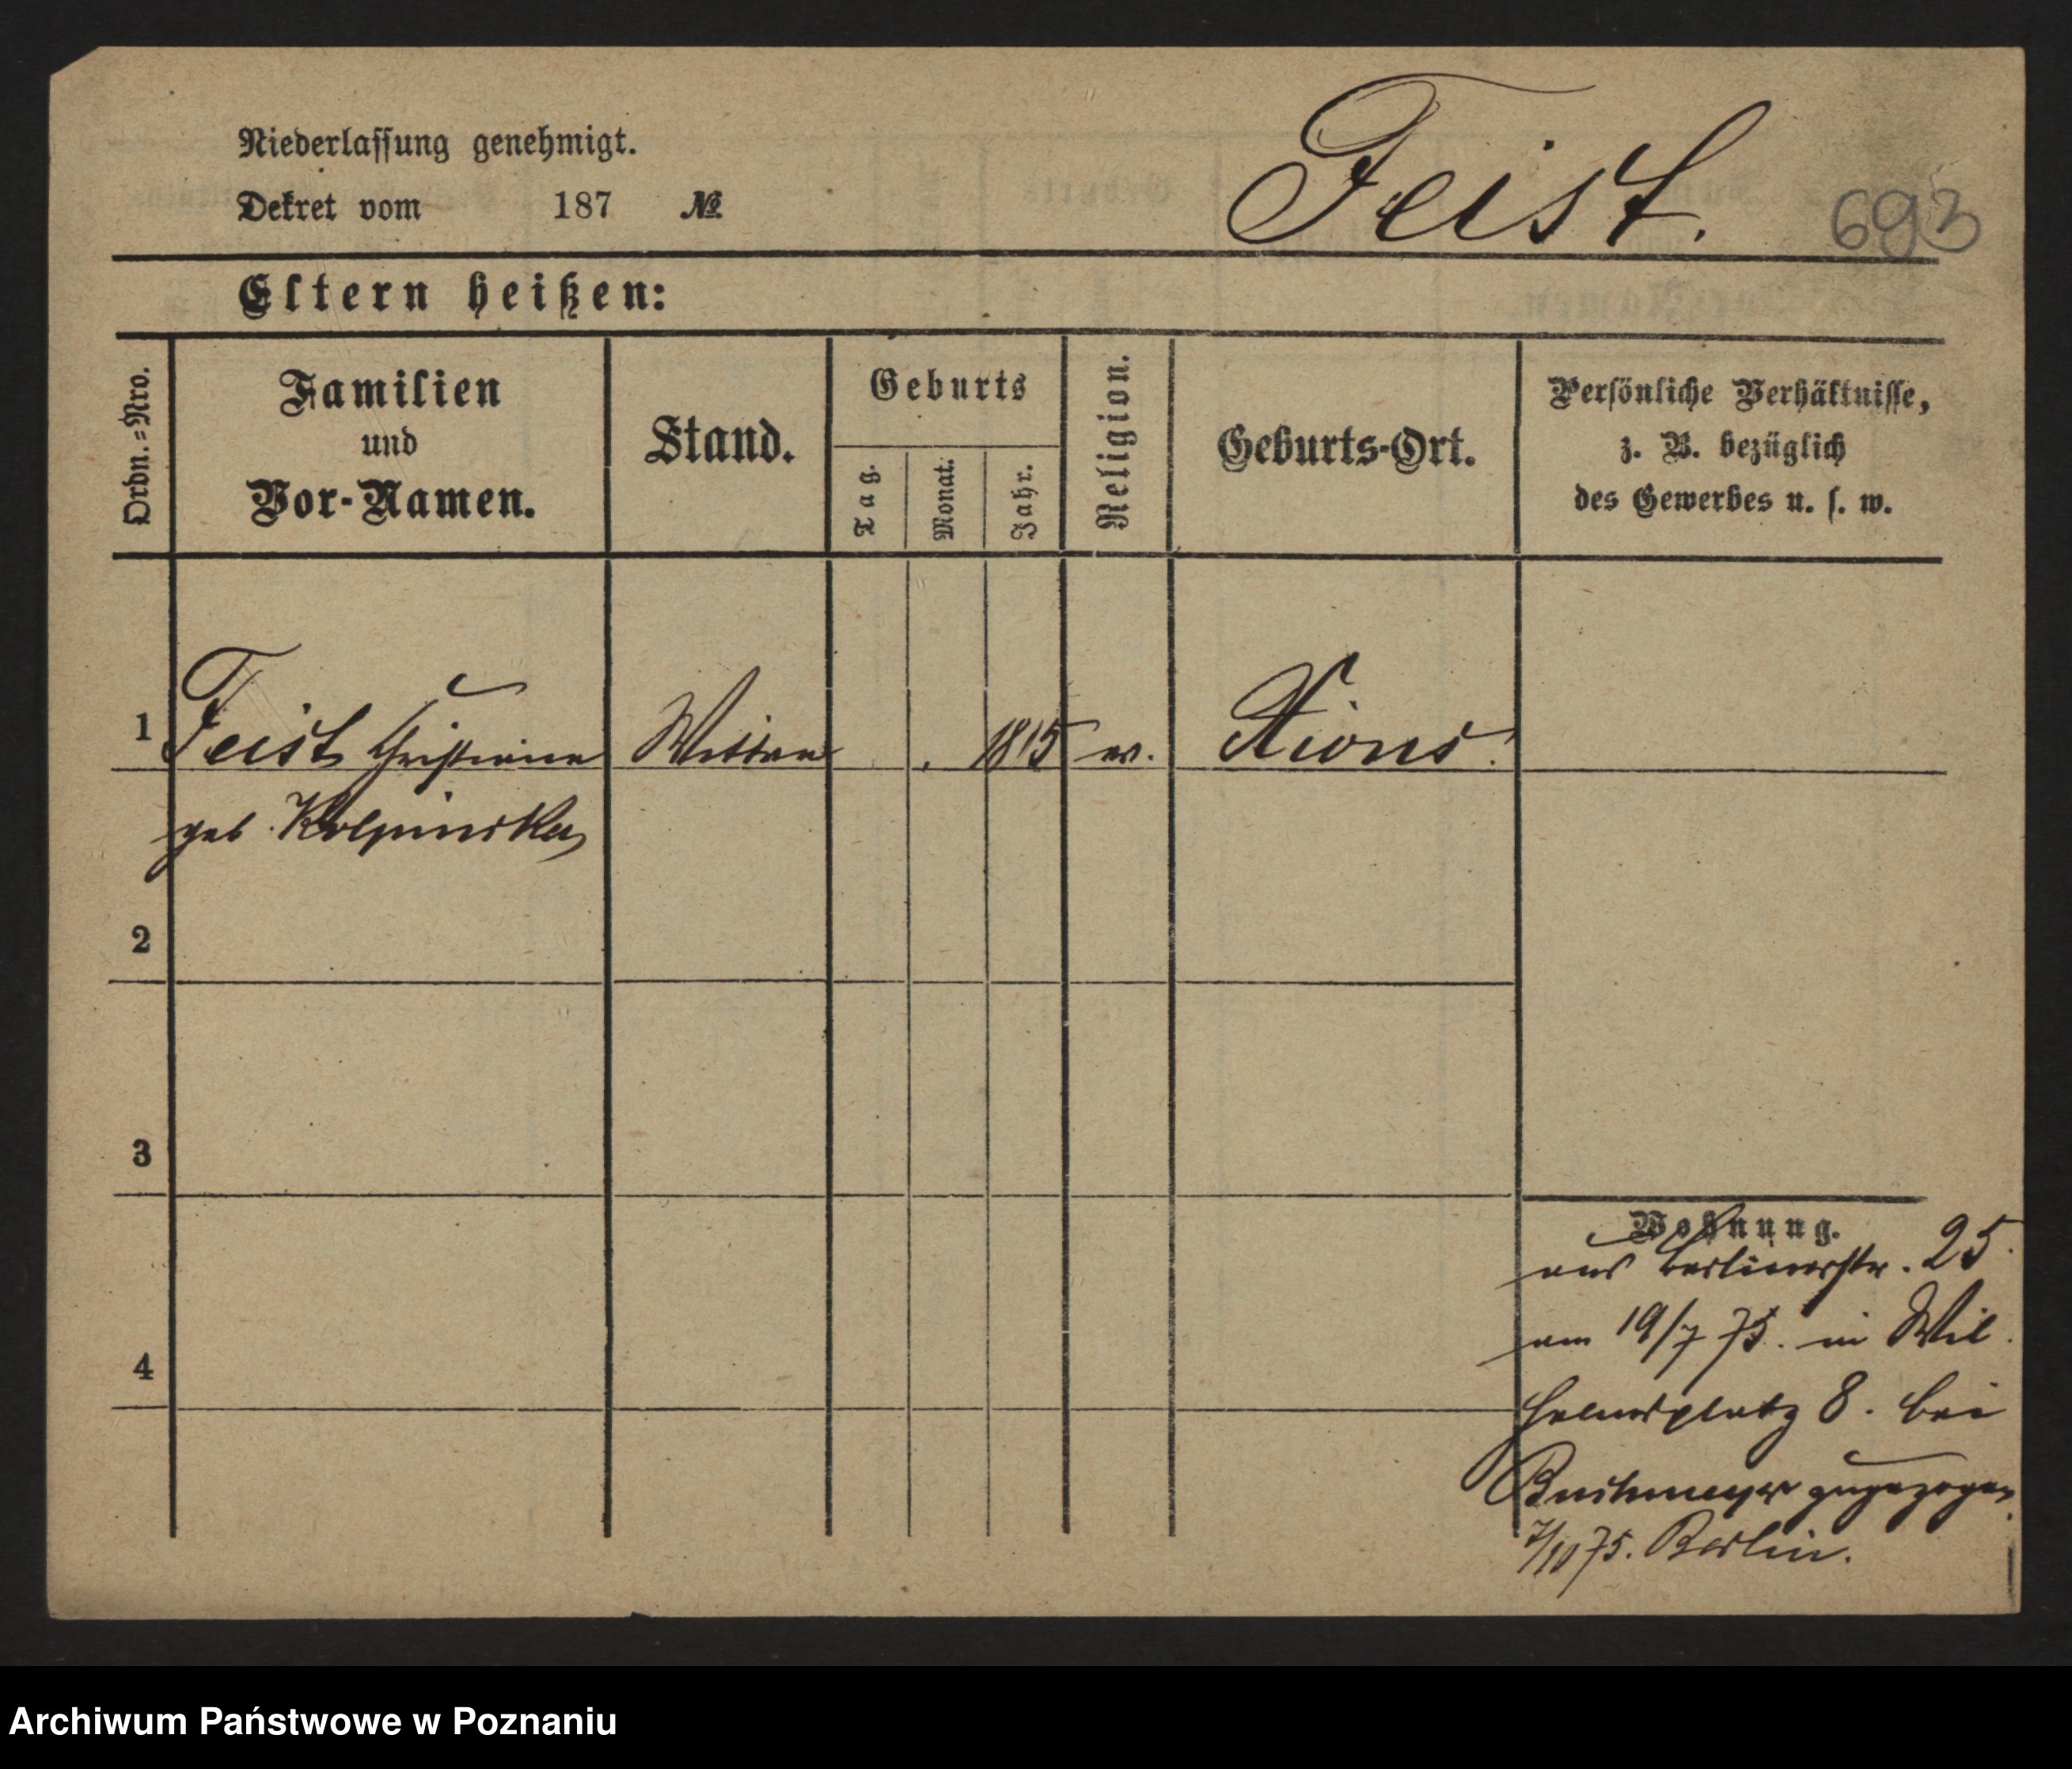 Niederlassung genehmigt.
Dekret vom 187 №
Feist.
693
Eltern heißen:
Ordn.=Nro.
Familien
und
Vor-Namen.
Stand.
Geburts
Tag.
Monat.
Jahr.
Religion.
Geburts-Ort.
Persönliche Verhältnisse,
z. B. bezüglich
des Gewerbes u. s. w.
1 Feist Christiane Wittwe 1815 ev. Xions.
geb. Kolpinska
2
3
4
Wohnung.
aus Berlinerstr. 25.
am 19/7 75. in Wil
helmsplatz 8. bei
zugezogen.
7/10 75. Berlin.
Archiwum Państwowe w Poznaniu